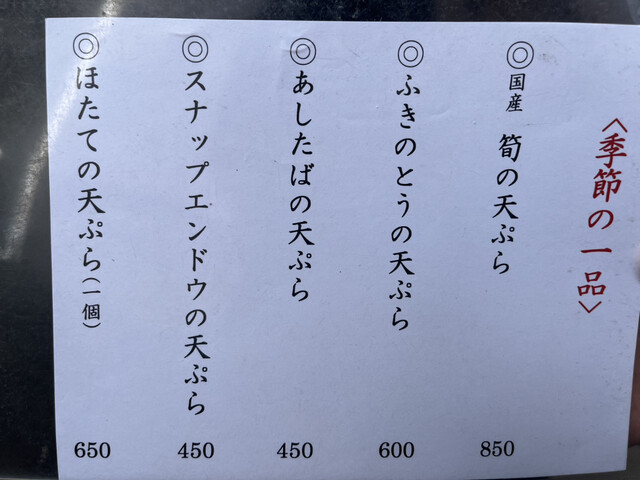 〈季節の一品〉
◎国産 筍の天ぷら 850
◎ふきのとうの天ぷら 600
◎あしたばの天ぷら 450
◎スナップエンドウの天ぷら 450
◎ほたての天ぷら(一個) 650